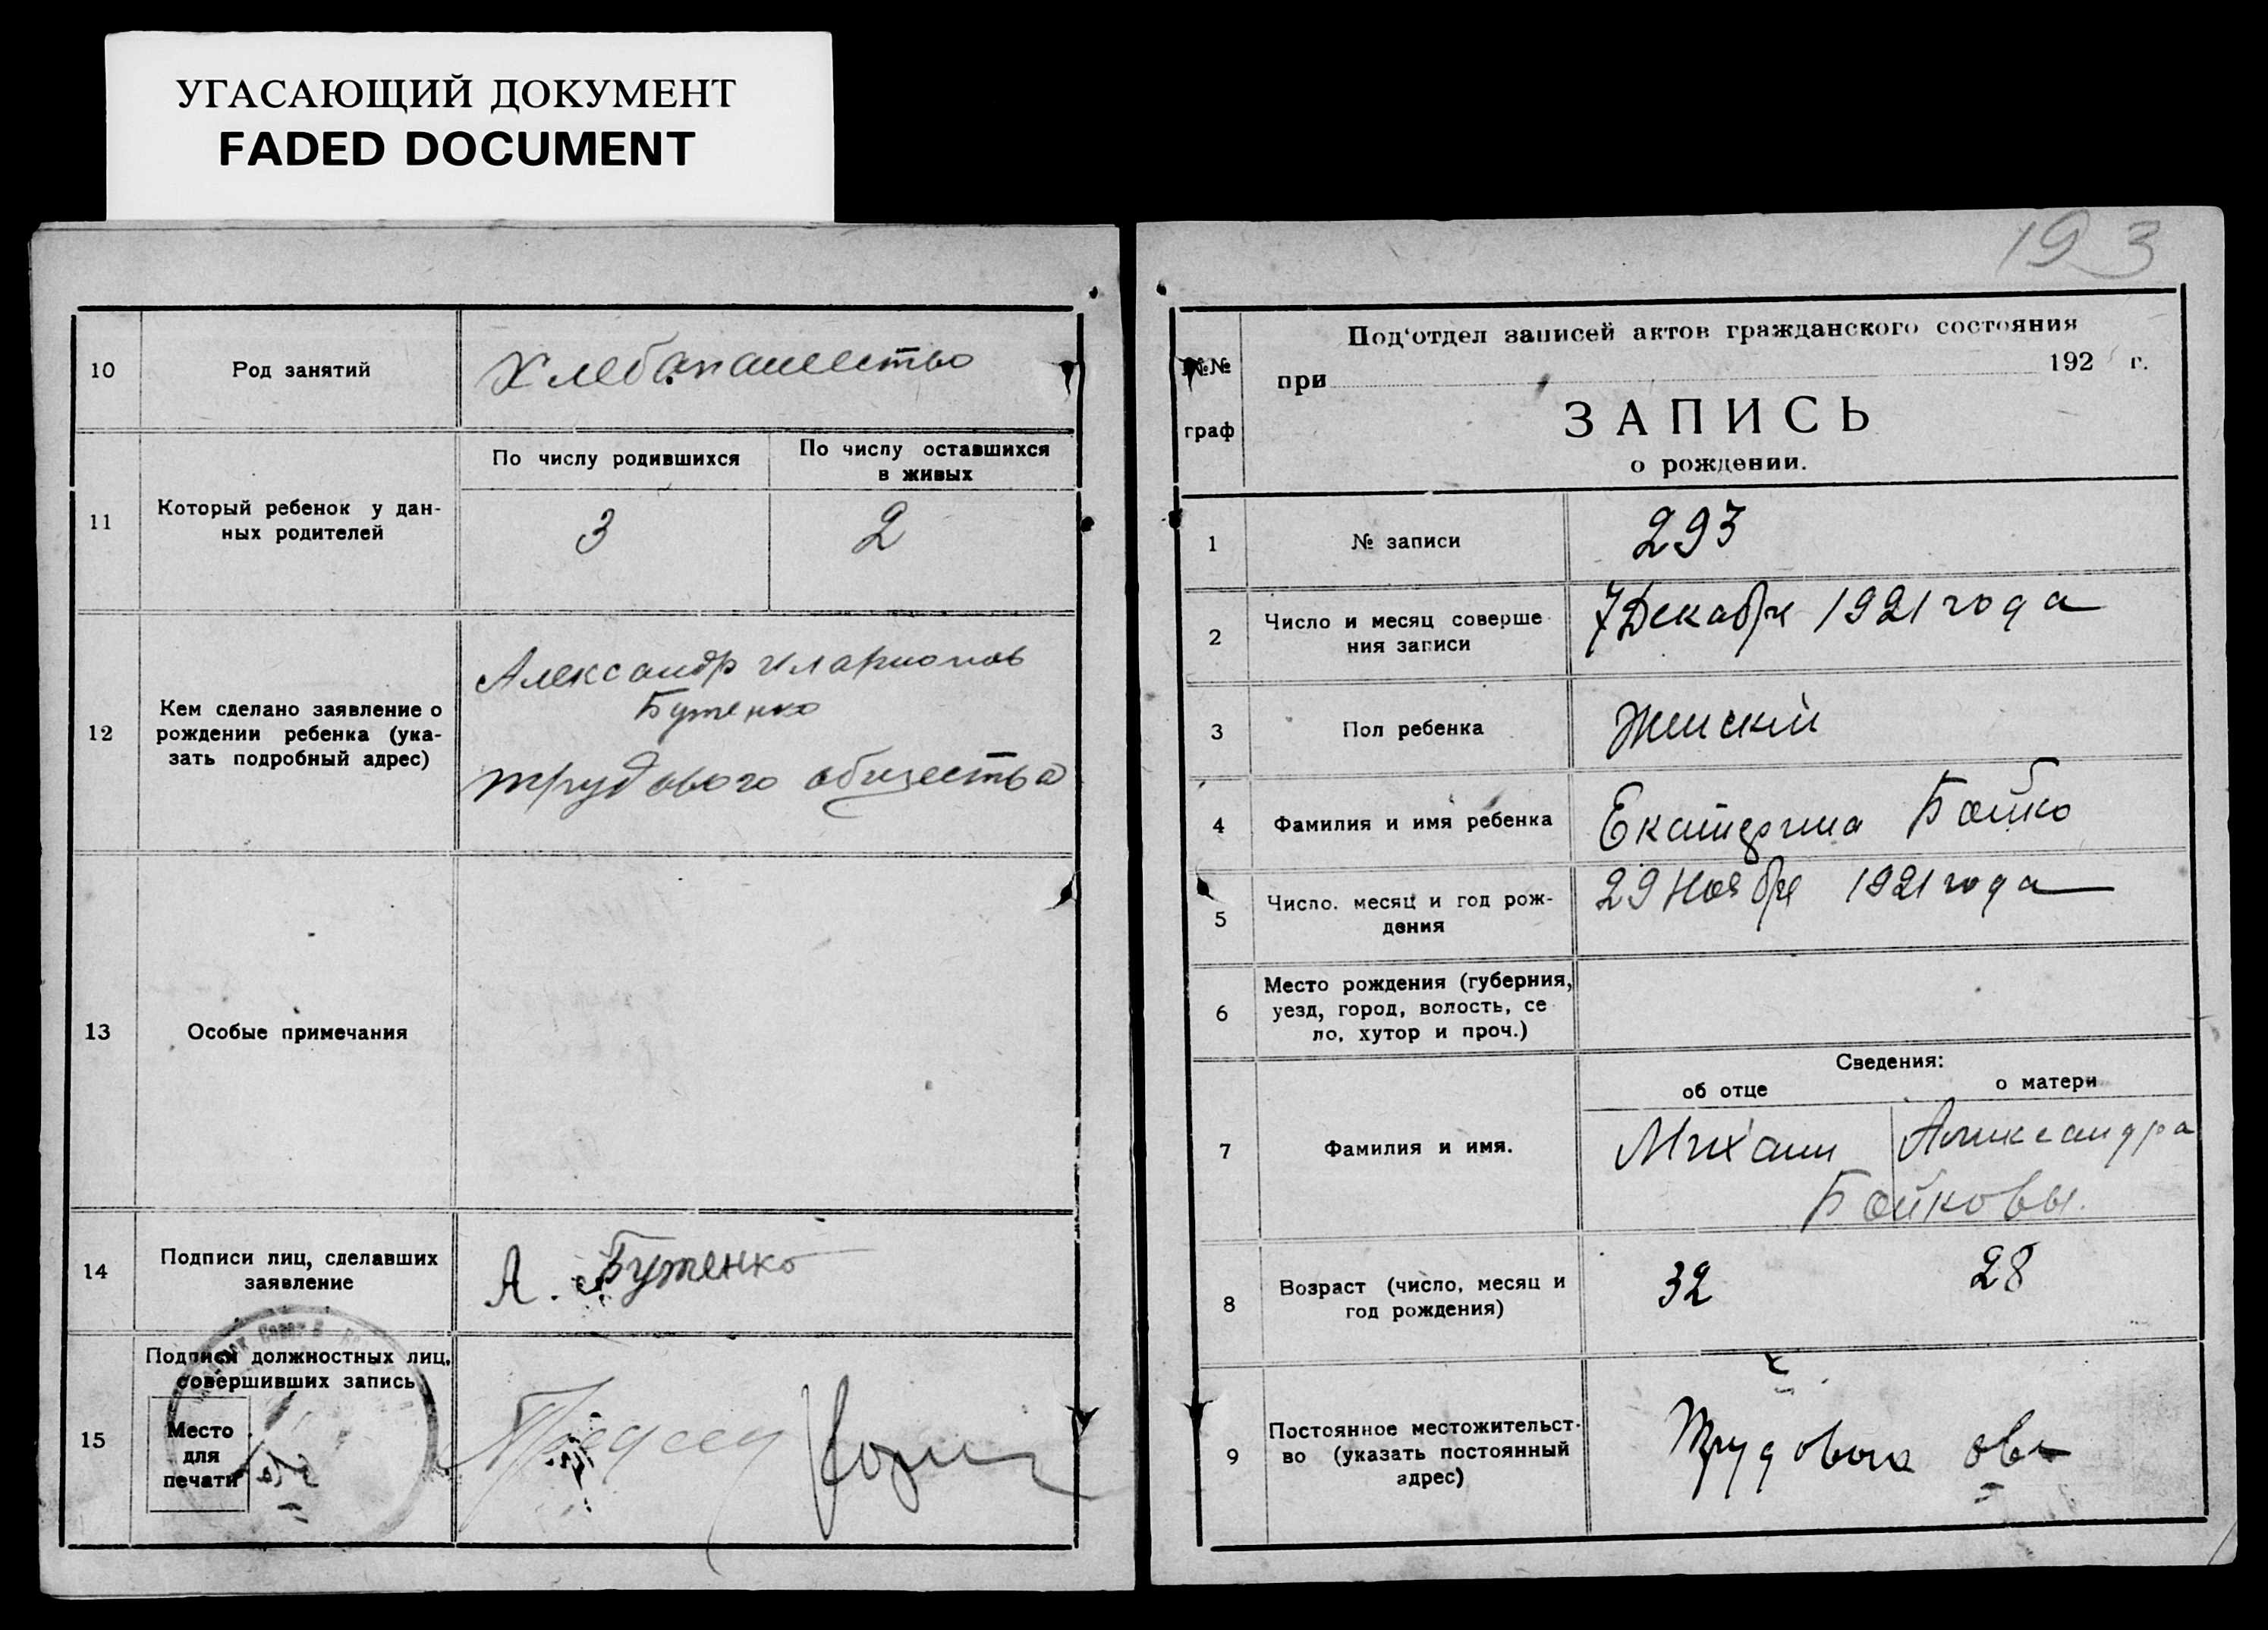 УГАСАЮЩИЙ ДОКУМЕНТ
FADED DOCUMENT
10
Род занятий
Хлебопашество
11
Который ребенок у дан-
ных родителей
По числу родившихся
По числу оставшихся
в живых
3
2
12
Кем сделано заявление о
рождении ребенка (ука-
зать подробный адрес)
Александр Иларионов
Бутенко
трудового общества
13
Особые примечания
14
Подписи лиц, сделавших
заявление
А. Бутенко
15
Подписи должностных лиц,
совершивших запись
Место
для
печати
193
№№
граф
Под'отдел записей актов гражданского состояния
при 192 г.
ЗАПИСЬ
о рождении.
1
№ записи
293
2
Число и месяц соверше
ния записи
7 Декабря 1921 года
3
Пол ребенка
Женский
4
Фамилия и имя ребенка
Екатерина Бойко
5
Число, месяц и год рож-
дения
29 Ноября 1921 года
6
Место рождения (губерния,
уезд, город, волость, се
ло, хутор и проч.)
Сведения:
об отце
о матери
7
Фамилия и имя.
Михаил
Александра
Бойковы.
8
Возраст (число, месяц и
год рождения)
32
28
9
Постоянное местожительст-
во (указать постоянный
адрес)